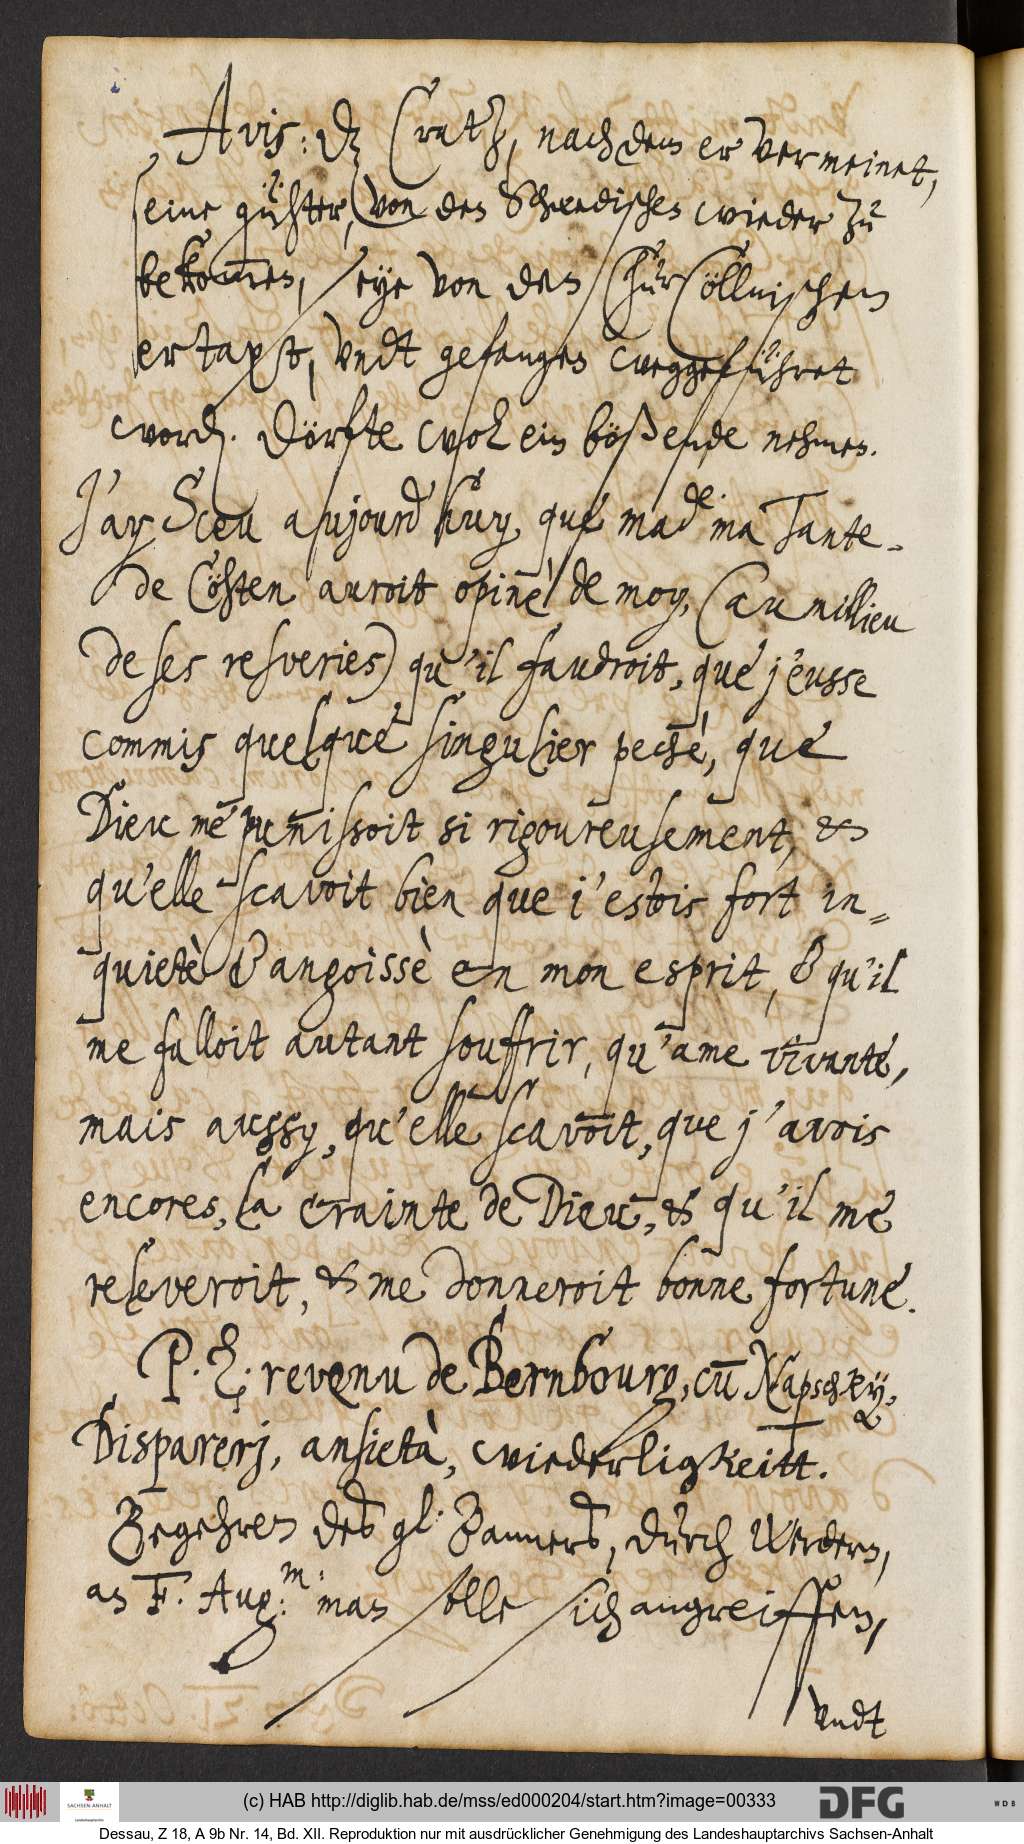 Avis: dz Cratz, nachdem er vermeinet,
seine gühter, von den Schwedischen wieder zu
bekom̅en, seye von den ChurCöllnischen
ertapt, undt gefangen weggeführet
word. Dörfte wol ein böß ende nehmen.
J'ay Sceu aujourd'huy, que mad.e ma Tante
de Cöhten auroit opinè de moy, (au millieu
de ses resveries) qu'il faudroit, que j'eusse
commis quelque singulier pechè, que
Dieu me punissoit si rigoureusement, &
qu'elle scavoit bien que i'estois fort in=
quietè & angoissè en mon esprit, & qu'il
me falloit autant souffrir, qu'ame vivante,
mais aussy, qu'elle scavoit, que j'avois
encores, la crainte de Dieu, & qu'il me
releveroit, & me donneroit bonne fortune.
P. E. revenu de Bernbourg, cū Napschky,
Disparerj, ansietà, wiederligkeitt.
Begehren des gl: Banners, durch Werdern,
an F. Aug:m: man solle sich angreiffen,
undt
(c) HAB http://diglib.hab.de/mss/ed000204/start.htm?image=00333
SACHSEN-ANHALT
Landeshauptarchiv
DFG
WDB
Dessau, Z 18, A 9b Nr. 14, Bd. XII. Reproduktion nur mit ausdrücklicher Genehmigung des Landeshauptarchivs Sachsen-Anhalt